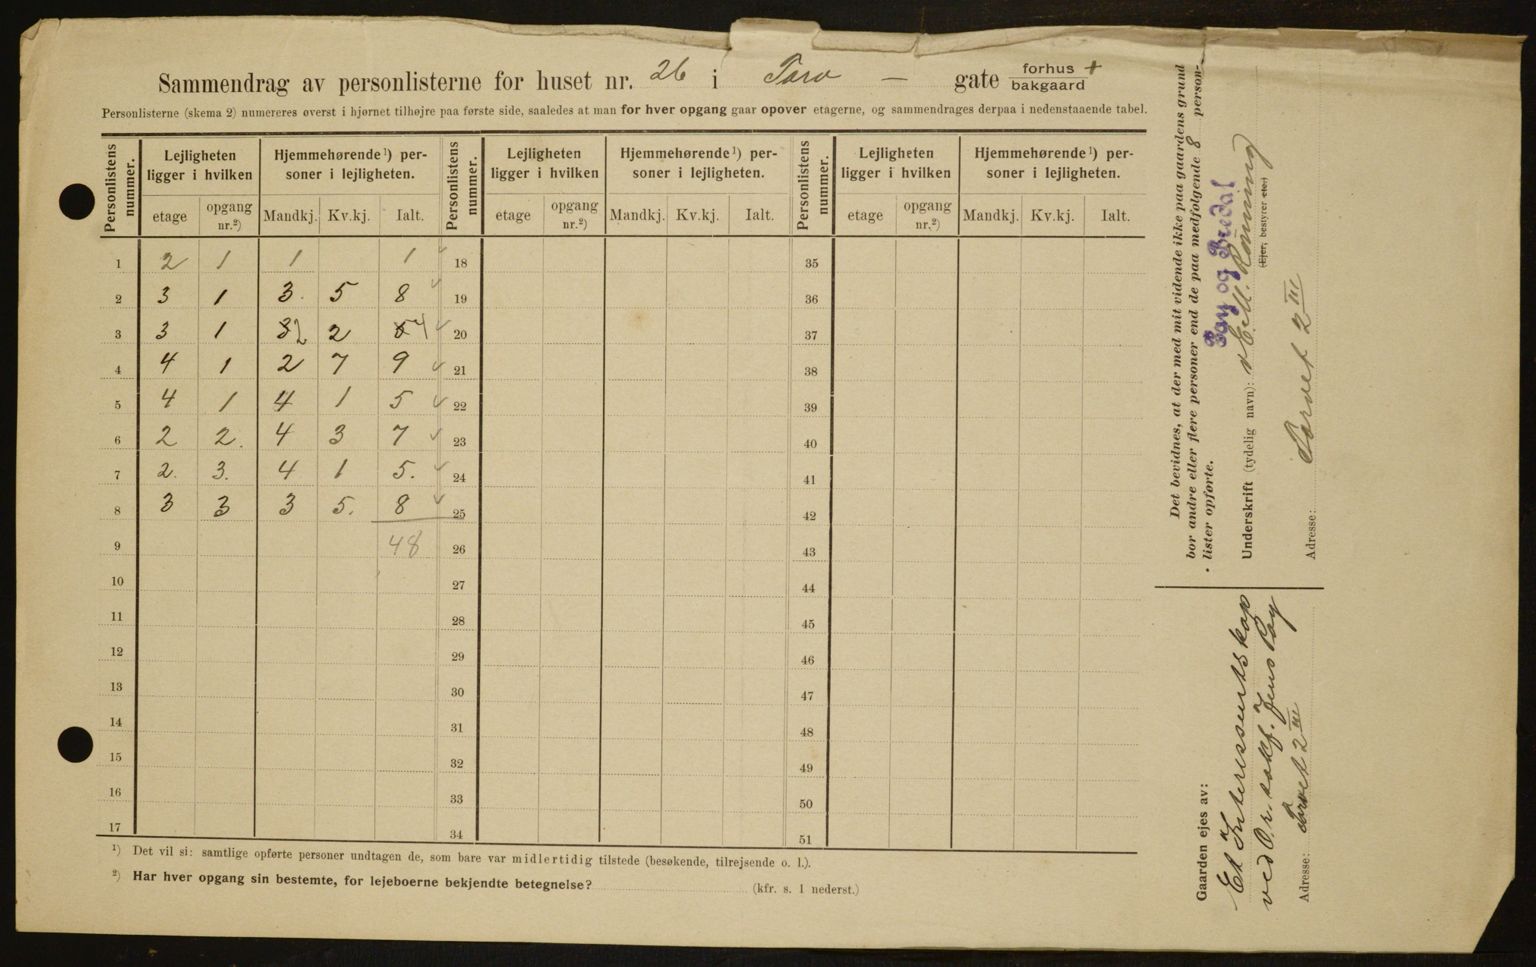 Sammendrag av personlisterne for huset nr. 26 i Torv - gate forhus + bakgaard
Personlisterne (skema 2) numereres øverst i hjørnet tilhøjre paa første side, saaledes at man for hver opgang gaar opover etagerne, og sammendrages derpaa i nedenstaaende tabel.
Personlistens nummer. Lejligheten ligger i hvilken Hjemmehørende¹) personer i lejligheten. Personlistens nummer. Lejligheten ligger i hvilken Hjemmehørende¹) personer i lejligheten. Personlistens nummer. Lejligheten ligger i hvilken Hjemmehørende¹) personer i lejligheten.
etage opgang nr.²) Mandkj. Kv.kj. Ialt. etage opgang nr.²) Mandkj. Kv.kj. Ialt. etage opgang nr.²) Mandkj. Kv.kj. Ialt.
1 2 1 1 1 ✓ 18 35
2 3 1 3 5 8 ✓ 19 36
3 3 1 3 2 2 5 4 ✓ 20 37
4 4 1 2 7 9 ✓ 21 38
5 4 1 4 1 5 ✓ 22 39
6 2 2. 4 3 7 ✓ 23 40
7 2. 3. 4 1 5. ✓ 24 41
8 3 3 3 5. 8 ✓ 25 42
9 48 26 43
10 27 44
11 28 45
12 29 46
13 30 47
14 31 48
15 32 49
16 33 50
17 34 51
¹) Det vil si: samtlige opførte personer undtagen de, som bare var midlertidig tilstede (besøkende, tilrejsende o. l.).
²) Har hver opgang sin bestemte, for lejeboerne bekjendte betegnelse? (kfr. s. 1 nederst.)
Det bevidnes, at der med mit vidende ikke paa gaardens grund
bor andre eller flere personer end de paa medfølgende 8 person-
lister opførte.
Pay og Bredal
Underskrift (tydelig navn): v E. M. Rønning
(Ejer, bestyrer etc.)
Adresse: Torvet 2 III
Gaarden ejes av:
Et Interessentskap
ved O.r. sakf. Jens Pay
Adresse: Torvet 2 III